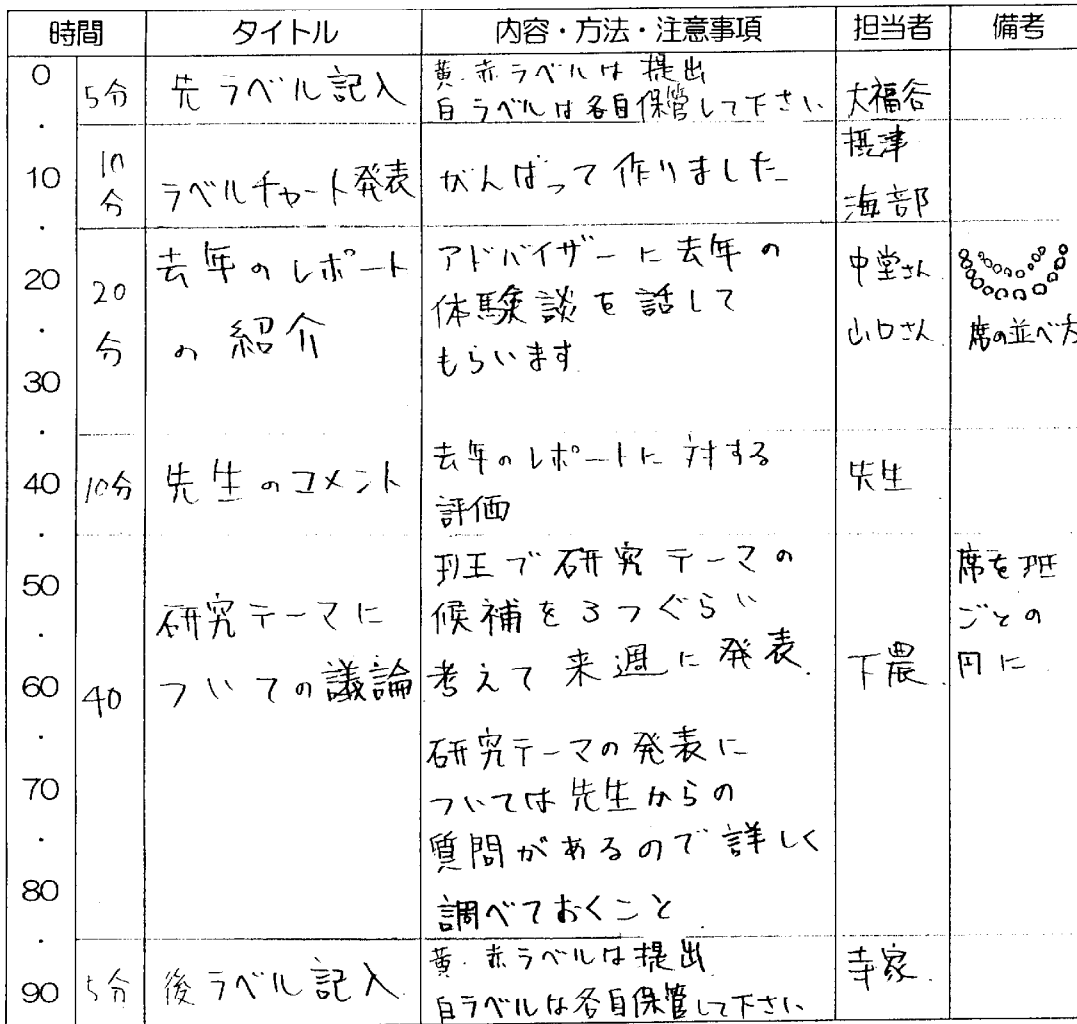 時間 タイトル 内容・方法・注意事項 担当者 備考
0
5分 先ラベル記入 黄・赤ラベルは提出
白ラベルは各自保管して下さい 大福谷
10 10分 ラベルチャート発表 がんばって作りました 摂津
海部
20 20分 去年のレポート
の紹介
アドバイザーに去年の
体験談を話して
もらいます
中堂さん
山口さん
席の並べ方
30
40 10分 先生のコメント 去年のレポートに対する
評価
先生
50
40 研究テーマに
ついての議論
班で研究テーマの
候補を3つぐらい
考えて来週に発表
研究テーマの発表に
ついては先生からの
質問があるので詳しく
調べておくこと
下農
席を班
ごとの
円に
60
70
80
90 5分 後ラベル記入 黄・赤ラベルは提出
白ラベルは各自保管して下さい
寺家